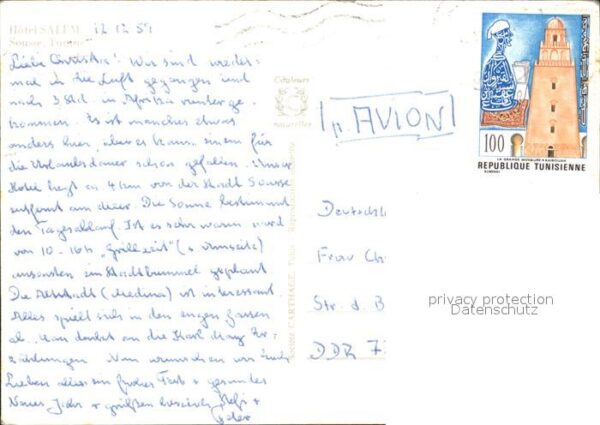 Hôtel SALEM
Sousse, Tunisie
12.12.59
Liebe Christa! Wir sind wieder-
mal in die Luft gegangen und
nach 3 Std. in Afrika runterge-
kommen. Es ist manches etwas
anders hier, aber es kann einem für
die Urlaubsdauer schon gefallen. Unser
Hotel liegt ca 4 km von der Stadt Sousse
entfernt am Meer. Die Sonne bestimmt
den Tagesablauf. Ist es sehr warm wird
von 10-16h "Grillzeit" (+ Umseite)
ansonsten ein Stadtbummel geplant
Die Altstadt (Medina) ist interessant.
Alles spielt sich in den engen Gassen
ab. Man denkt an die Karl May Er-
zählungen. Nun wünschen wir Euch
Lieben allen ein frohes Fest + gesundes
Neues Jahr + grüßen herzlich Steffi +
Peter
Couleurs
Naturelles
CARTHAGE, Tunis
p. AVION
100
LA GRANDE MOSQUÉE KAIROUAN
REPUBLIQUE TUNISIENNE
Deutschl
Frau Ch
Str. d. B
DDR 7
privacy protection
Datenschutz